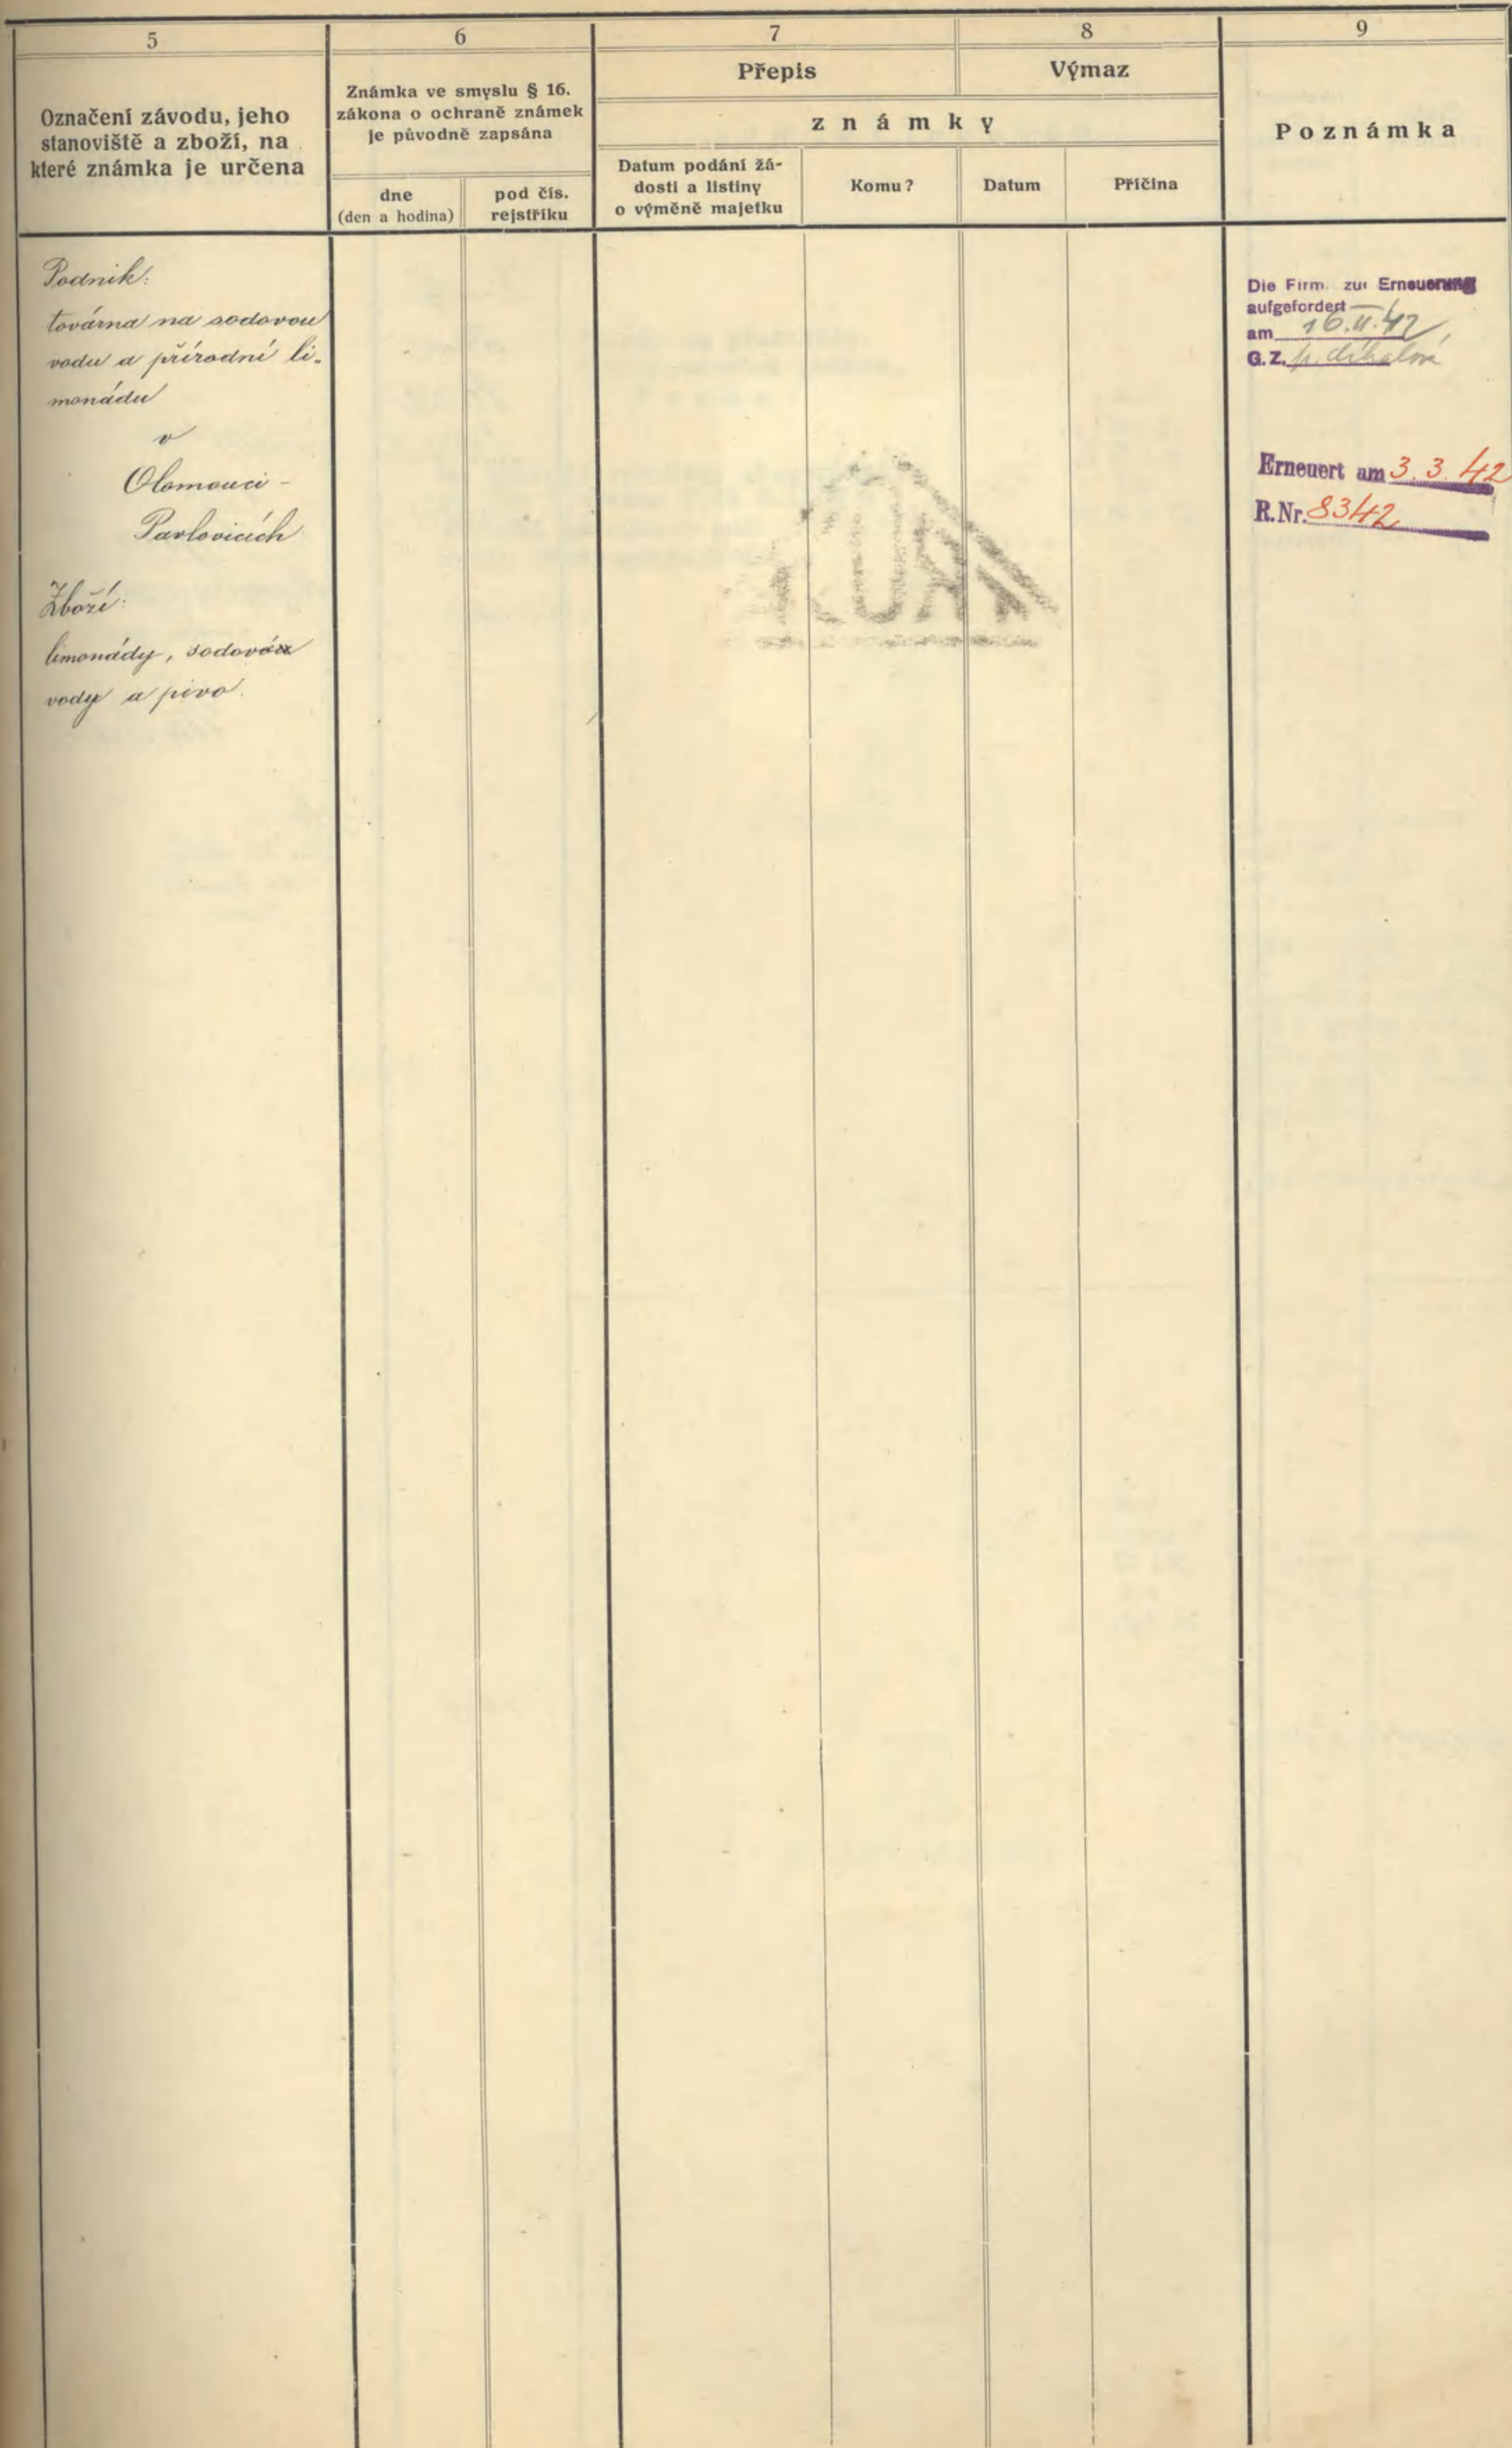 5
6
7
8
9
Označení závodu, jeho
stanoviště a zboží, na
které známka je určena
Známka ve smyslu § 16.
zákona o ochraně známek
je původně zapsána
dne
(den a hodina)
pod čís.
rejstříku
Přepis
Výmaz
známky
Datum podání žá-
dosti a listiny
o výměně majetku
Komu?
Datum
Příčina
Poznámka
Podnik:
továrna na sodovou
vodu a přírodní li-
monádu
v
Olomouci -
Pavlovicích
Zboží:
limonády, sodová
vody a pivo.
Die Firm zur Erneuerung
aufgefordert
am 16.II.42
G.Z.
Erneuert am 3.3.42
R.Nr. 8342